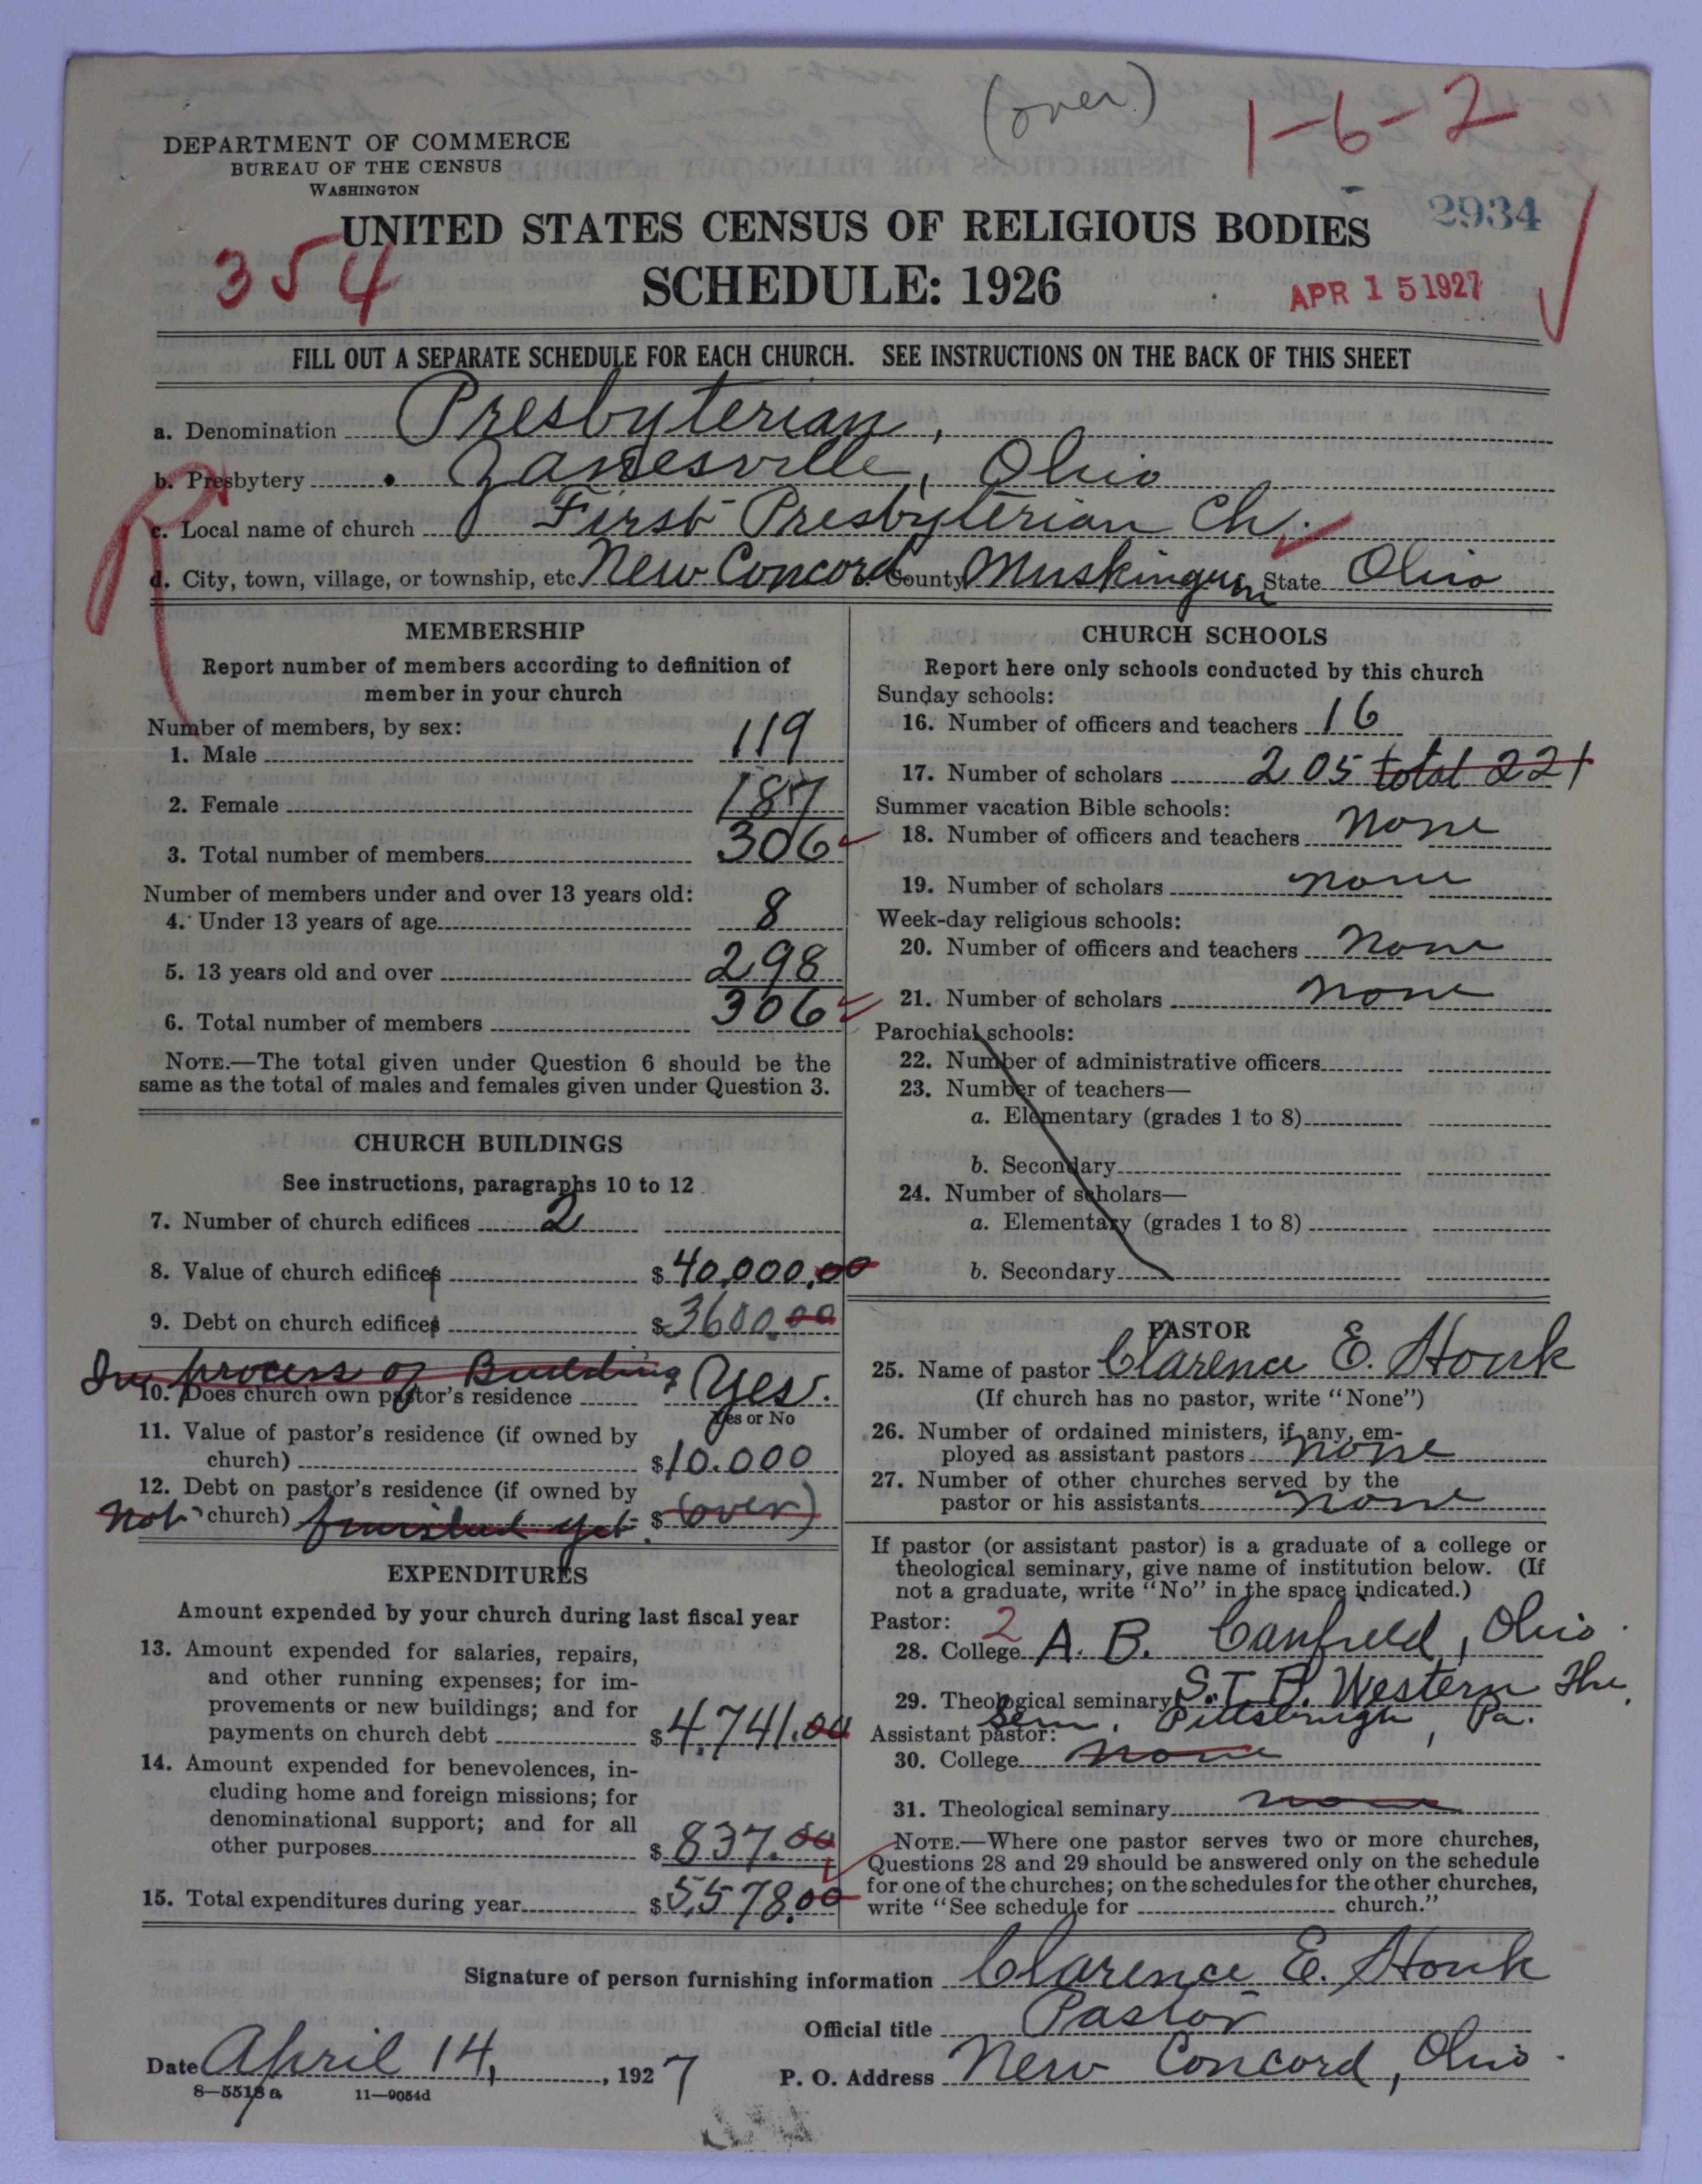 (over)
1-6-2
DEPARTMENT OF COMMERCE
BUREAU OF THE CENSUS
WASHINGTON
2934
UNITED STATES CENSUS OF RELIGIOUS BODIES
354
SCHEDULE: 1926
APR 15 1927
FILL OUT A SEPARATE SCHEDULE FOR EACH CHURCH. SEE INSTRUCTIONS ON THE BACK OF THIS SHEET
a. Denomination Presbyterian,
b. Presbytery Zanesville, Ohio
c. Local name of church First Presbyterian Ch.
d. City, town, village, or township, etc. New Concord County Muskingum State Ohio
R
MEMBERSHIP
Report number of members according to definition of
member in your church
Number of members, by sex:
1. Male 119
2. Female 187
3. Total number of members 306
Number of members under and over 13 years old:
4. Under 13 years of age 8
5. 13 years old and over 298
6. Total number of members 306
NOTE.—The total given under Question 6 should be the
same as the total of males and females given under Question 3.
CHURCH BUILDINGS
See instructions, paragraphs 10 to 12
7. Number of church edifices 2
8. Value of church edifices $40,000.00
9. Debt on church edifices $3600.00
In process of Building
10. Does church own pastor's residence Yes.
Yes or No
11. Value of pastor's residence (if owned by
church) $10.000
12. Debt on pastor's residence (if owned by
church) not finished yet. $(over)
EXPENDITURES
Amount expended by your church during last fiscal year
13. Amount expended for salaries, repairs,
and other running expenses; for im-
provements or new buildings; and for
payments on church debt $4,741.00
14. Amount expended for benevolences, in-
cluding home and foreign missions; for
denominational support; and for all
other purposes $837.00
15. Total expenditures during year $5,578.00
CHURCH SCHOOLS
Report here only schools conducted by this church
Sunday schools:
16. Number of officers and teachers 16
17. Number of scholars 205 total 221
Summer vacation Bible schools:
18. Number of officers and teachers None
19. Number of scholars none
Week-day religious schools:
20. Number of officers and teachers None
21. Number of scholars none
Parochial schools:
22. Number of administrative officers
23. Number of teachers—
a. Elementary (grades 1 to 8)
b. Secondary
24. Number of scholars—
a. Elementary (grades 1 to 8)
b. Secondary
PASTOR
25. Name of pastor Clarence E. Houk
(If church has no pastor, write "None")
26. Number of ordained ministers, if any, em-
ployed as assistant pastors none
27. Number of other churches served by the
pastor or his assistants none
If pastor (or assistant pastor) is a graduate of a college or
theological seminary, give name of institution below. (If
not a graduate, write "No" in the space indicated.)
Pastor: 2
28. College A. B. Canfield, Ohio.
29. Theological seminary S.T.B. Western The.
Sem., Pittsburgh, Pa.
Assistant pastor:
30. College none
31. Theological seminary none
NOTE.—Where one pastor serves two or more churches,
Questions 28 and 29 should be answered only on the schedule
for one of the churches; on the schedules for the other churches,
write "See schedule for church."
Signature of person furnishing information Clarence E. Houk
Official title Pastor
Date April 14, 1927
P. O. Address New Concord, Ohio.
8—5518a 11—9054d